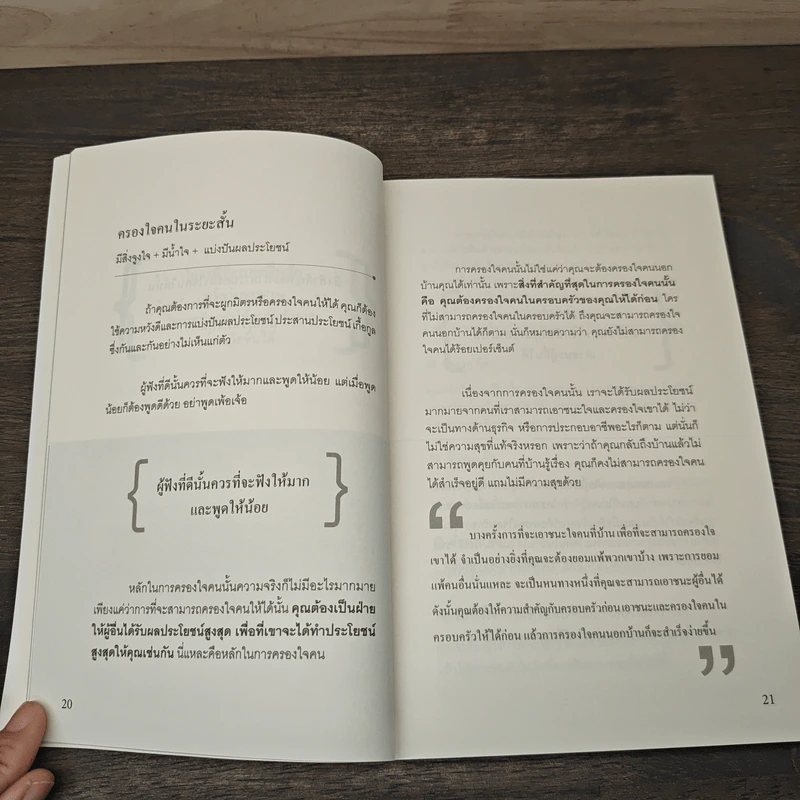 ครองใจคนในระยะสั้น
มีสิ่งจูงใจ + มีน้ำใจ + แบ่งปันผลประโยชน์
ถ้าคุณต้องการที่จะผูกมิตรหรือครองใจคนให้ได้ คุณก็ต้อง
ใช้ความหวังดีและการแบ่งปันผลประโยชน์ ประสานประโยชน์ เกื้อกูล
ซึ่งกันและกันอย่างไม่เห็นแก่ตัว
ผู้ฟังที่ดีนั้นควรที่จะฟังให้มากและพูดให้น้อย แต่เมื่อพูด
น้อยก็ต้องพูดดีด้วย อย่าพูดเพ้อเจ้อ
ผู้ฟังที่ดีนั้นควรที่จะฟังให้มาก
และพูดให้น้อย
หลักในการครองใจคนนั้นความจริงก็ไม่มีอะไรมากมาย
เพียงแค่ว่าการที่จะสามารถครองใจคนให้ได้นั้น คุณต้องเป็นฝ่าย
ให้ผู้อื่นได้รับผลประโยชน์สูงสุด เพื่อที่เขาจะได้ทำประโยชน์
สูงสุดให้คุณเช่นกัน นี่แหละคือหลักในการครองใจคน
20
การครองใจคนนั้นไม่ใช่แค่ว่าคุณจะต้องครองใจคนนอก
บ้านคุณได้เท่านั้น เพราะสิ่งที่สำคัญที่สุดในการครองใจคนนั้น
คือ คุณต้องครองใจคนในครอบครัวของคุณให้ได้ก่อน ใคร
ที่ไม่สามารถครองใจคนในครอบครัวได้ ถึงคุณจะสามารถครองใจ
คนนอกบ้านได้ก็ตาม นั่นก็หมายความว่า คุณยังไม่สามารถครอง
ใจคนได้ร้อยเปอร์เซ็นต์
เนื่องจากการครองใจคนนั้น เราจะได้รับผลประโยชน์
มากมายจากคนที่เราสามารถเอาชนะใจและครองใจเขาได้ ไม่ว่า
จะเป็นทางด้านธุรกิจ หรือการประกอบอาชีพอะไรก็ตาม แต่นั่นก็
ไม่ใช่ความสุขที่แท้จริงหรอก เพราะว่าถ้าคุณกลับถึงบ้านแล้วไม่
สามารถพูดคุยกับคนที่บ้านรู้เรื่อง คุณก็คงไม่สามารถครองใจคน
ได้สำเร็จอยู่ดี แถมไม่มีความสุขด้วย
“
บางครั้งการที่จะเอาชนะใจคนที่บ้าน เพื่อที่จะสามารถครองใจ
เขาได้ จำเป็นอย่างยิ่งที่คุณจะต้องยอมแพ้พวกเขาบ้าง เพราะการยอม
แพ้คนอื่นนั่นแหละ จะเป็นหนทางหนึ่งที่คุณจะสามารถเอาชนะผู้อื่นได้
ดังนั้นคุณต้องให้ความสำคัญกับครอบครัวก่อน เอาชนะและครองใจคนใน
ครอบครัวให้ได้ก่อน แล้วการครองใจคนนอกบ้านก็จะสำเร็จง่ายขึ้น
”
21